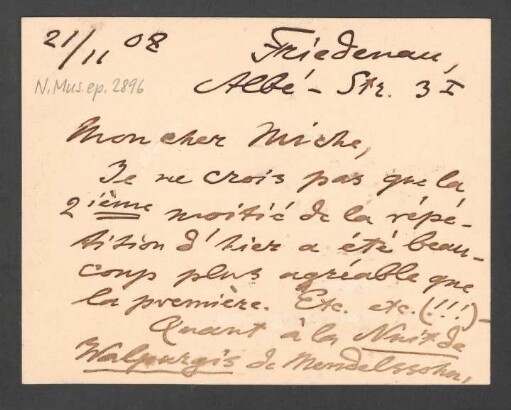 21/11 08
Friedenau,
N.Mus.ep. 2896
Albé-Str. 3 I
Mon cher Miche,
Je ne crois pas que la
2ième moitié de la répé-
tition d'hier a été beau-
coup plus agréable que
la première. Etc. etc. (!!!)–
Quant à la Nuit de
Walpurgis de Mendelssohn,